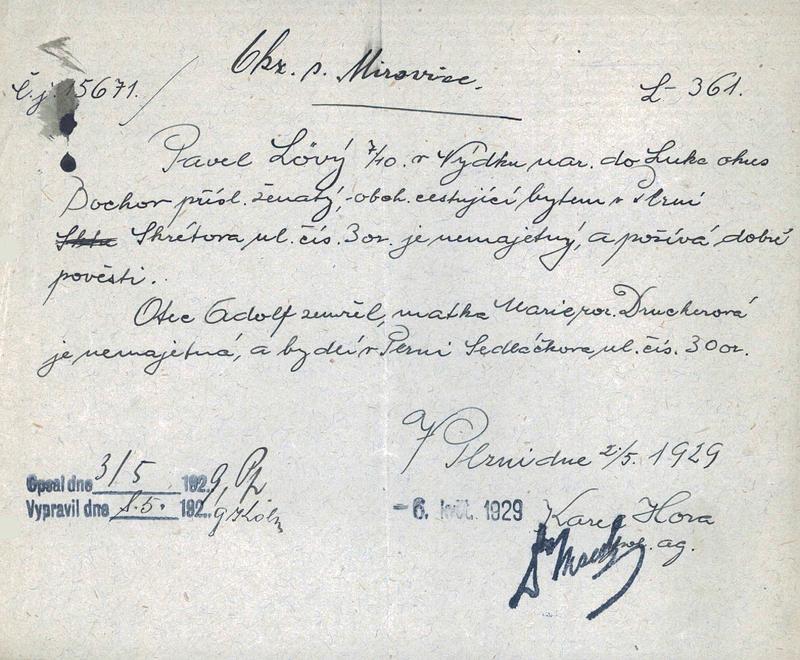 Č.j. 15671.
Okr. s. Mirovice.
L- 361.
Pavel Lövý 7/10. v Výdku nar. do Luka okres
Dochov přísl. ženatý, obch. cestující, bytem v Plzni
Škrétova ul. čís. 3 or. je nemajetný, a požívá dobré
pověsti.
Otec Adolf zemřel, matka Marie roz. Druckerová
je nemajetná, a bydlí v Plzni Sedláčkova ul. čís. 30 or.
V Plzni dne 2./5. 1929
Opsal dne 3/5 1929
Vypravil dne 8.5. 192.9
-6. květ. 1929
Karel Hora
ag.